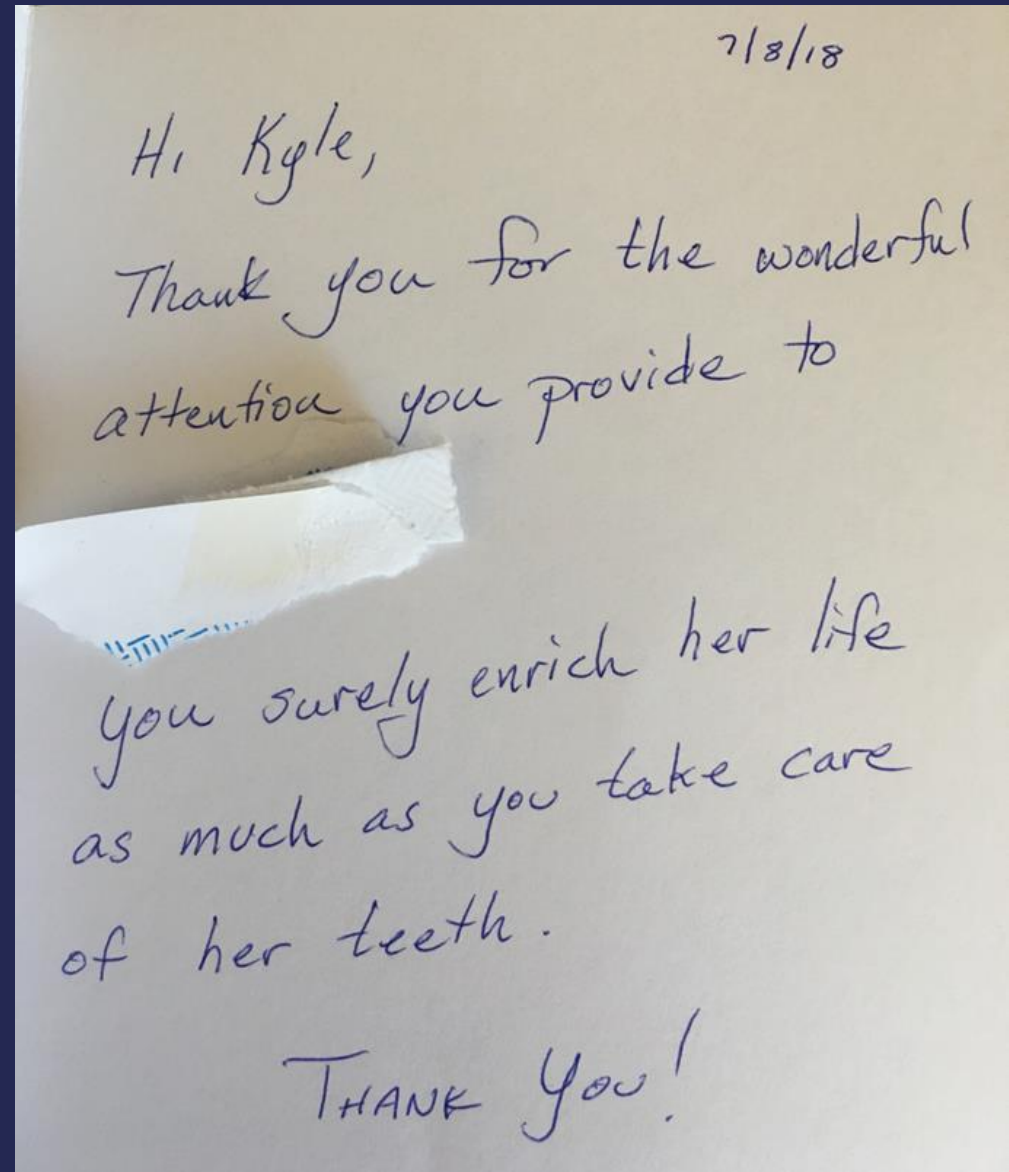 7/8/18
Hi Kyle,
Thank you for the wonderful
attention you provide to
you surely enrich her life
as much as you take care
of her teeth.
THANK YOU!